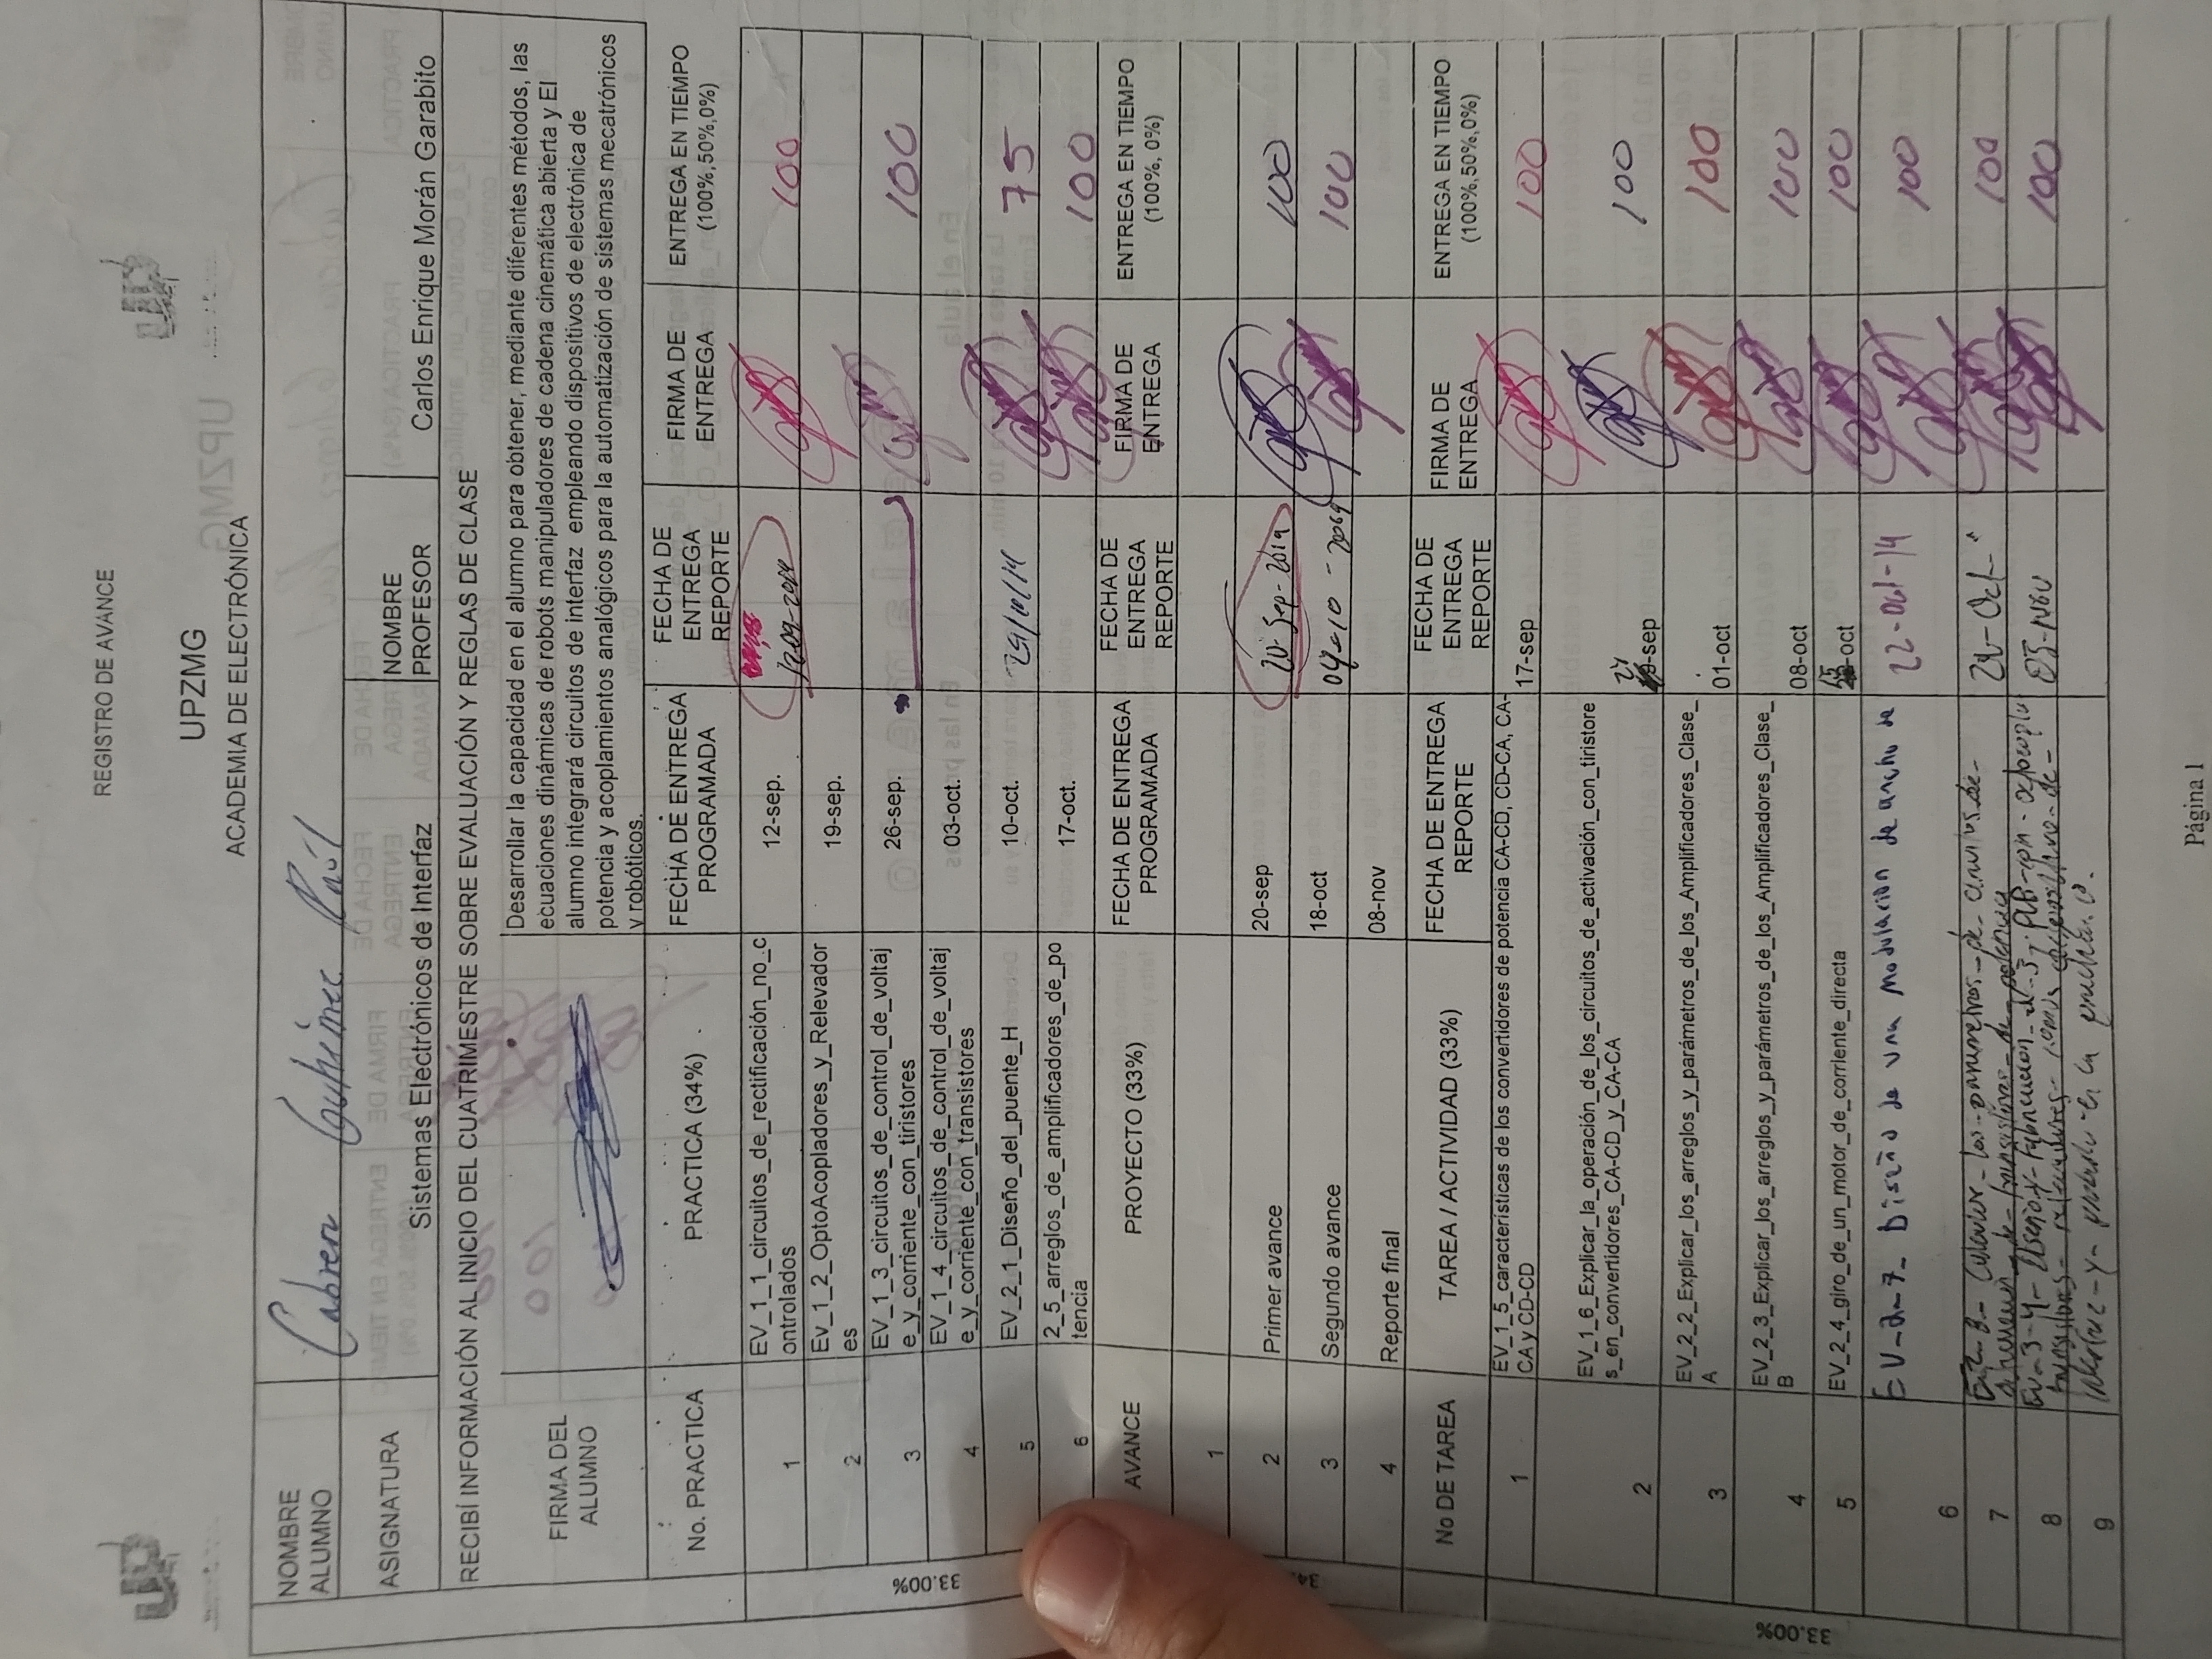 REGISTRO DE AVANCE
UP
UP
UPZMG
ACADEMIA DE ELECTRÓNICA
NOMBRE ALUMNO
Cabrera Gutiérrez Raúl
ASIGNATURA
Sistemas Electrónicos de Interfaz
NOMBRE PROFESOR
Carlos Enrique Morán Garabito
RECIBÍ INFORMACIÓN AL INICIO DEL CUATRIMESTRE SOBRE EVALUACIÓN Y REGLAS DE CLASE
FIRMA DEL ALUMNO
Desarrollar la capacidad en el alumno para obtener, mediante diferentes métodos, las
ecuaciones dinámicas de robots manipuladores de cadena cinemática abierta y El
alumno integrará circuitos de interfaz empleando dispositivos de electrónica de
potencia y acoplamientos analógicos para la automatización de sistemas mecatrónicos
y robóticos.
No. PRACTICA PRACTICA (34%) FECHA DE ENTREGA PROGRAMADA FECHA DE ENTREGA REPORTE FIRMA DE ENTREGA ENTREGA EN TIEMPO (100%,50%,0%)
33.00%
1 EV_1_1_circuitos_de_rectificación_no_c
ontrolados 12-sep. 12-09-2019 100
2 Ev_1_2_OptoAcopladores_y_Relevador
es 19-sep.
3 EV_1_3_circuitos_de_control_de_voltaj
e_y_corriente_con_tiristores 26-sep. 100
4 EV_1_4_circuitos_de_control_de_voltaj
e_y_corriente_con_transistores 03-oct.
5 EV_2_1_Diseño_del_puente_H 10-oct. 75
6 2_5_arreglos_de_amplificadores_de_po
tencia 17-oct. 100
AVANCE PROYECTO (33%) FECHA DE ENTREGA PROGRAMADA FECHA DE ENTREGA REPORTE FIRMA DE ENTREGA ENTREGA EN TIEMPO (100%, 0%)
34.
1
2 Primer avance 20-sep 20-Sep-2019 100
3 Segundo avance 18-oct 04-10-2019 100
4 Reporte final 08-nov
No DE TAREA TAREA / ACTIVIDAD (33%) FECHA DE ENTREGA REPORTE FECHA DE ENTREGA REPORTE FIRMA DE ENTREGA ENTREGA EN TIEMPO (100%,50%,0%)
33.00%
1 EV_1_5_características de los convertidores de potencia CA-CD, CD-CA, CA-
CA y CD-CD 17-sep 100
2 EV_1_6_Explicar_la_operación_de_los_circuitos_de_activación_con_tiristore
s_en_convertidores_CA-CD_y_CA-CA 24-sep 100
3 EV_2_2_Explicar_los_arreglos_y_parámetros_de_los_Amplificadores_Clase_
A 01-oct 100
4 EV_2_3_Explicar_los_arreglos_y_parámetros_de_los_Amplificadores_Clase_
B 08-oct 100
5 EV_2_4_giro_de_un_motor_de_corriente_directa 15-oct 100
6 EV-2-7- Diseño de una modulacion de ancho de 22-Oct-19 100
7 Calcular-los-parametros-de-circuitos-de-
de-transistores-de-potencia 100
8 EV-3-4-Diseño-y-Fabricacion
transistores-relevadores-como 100
9
Página 1